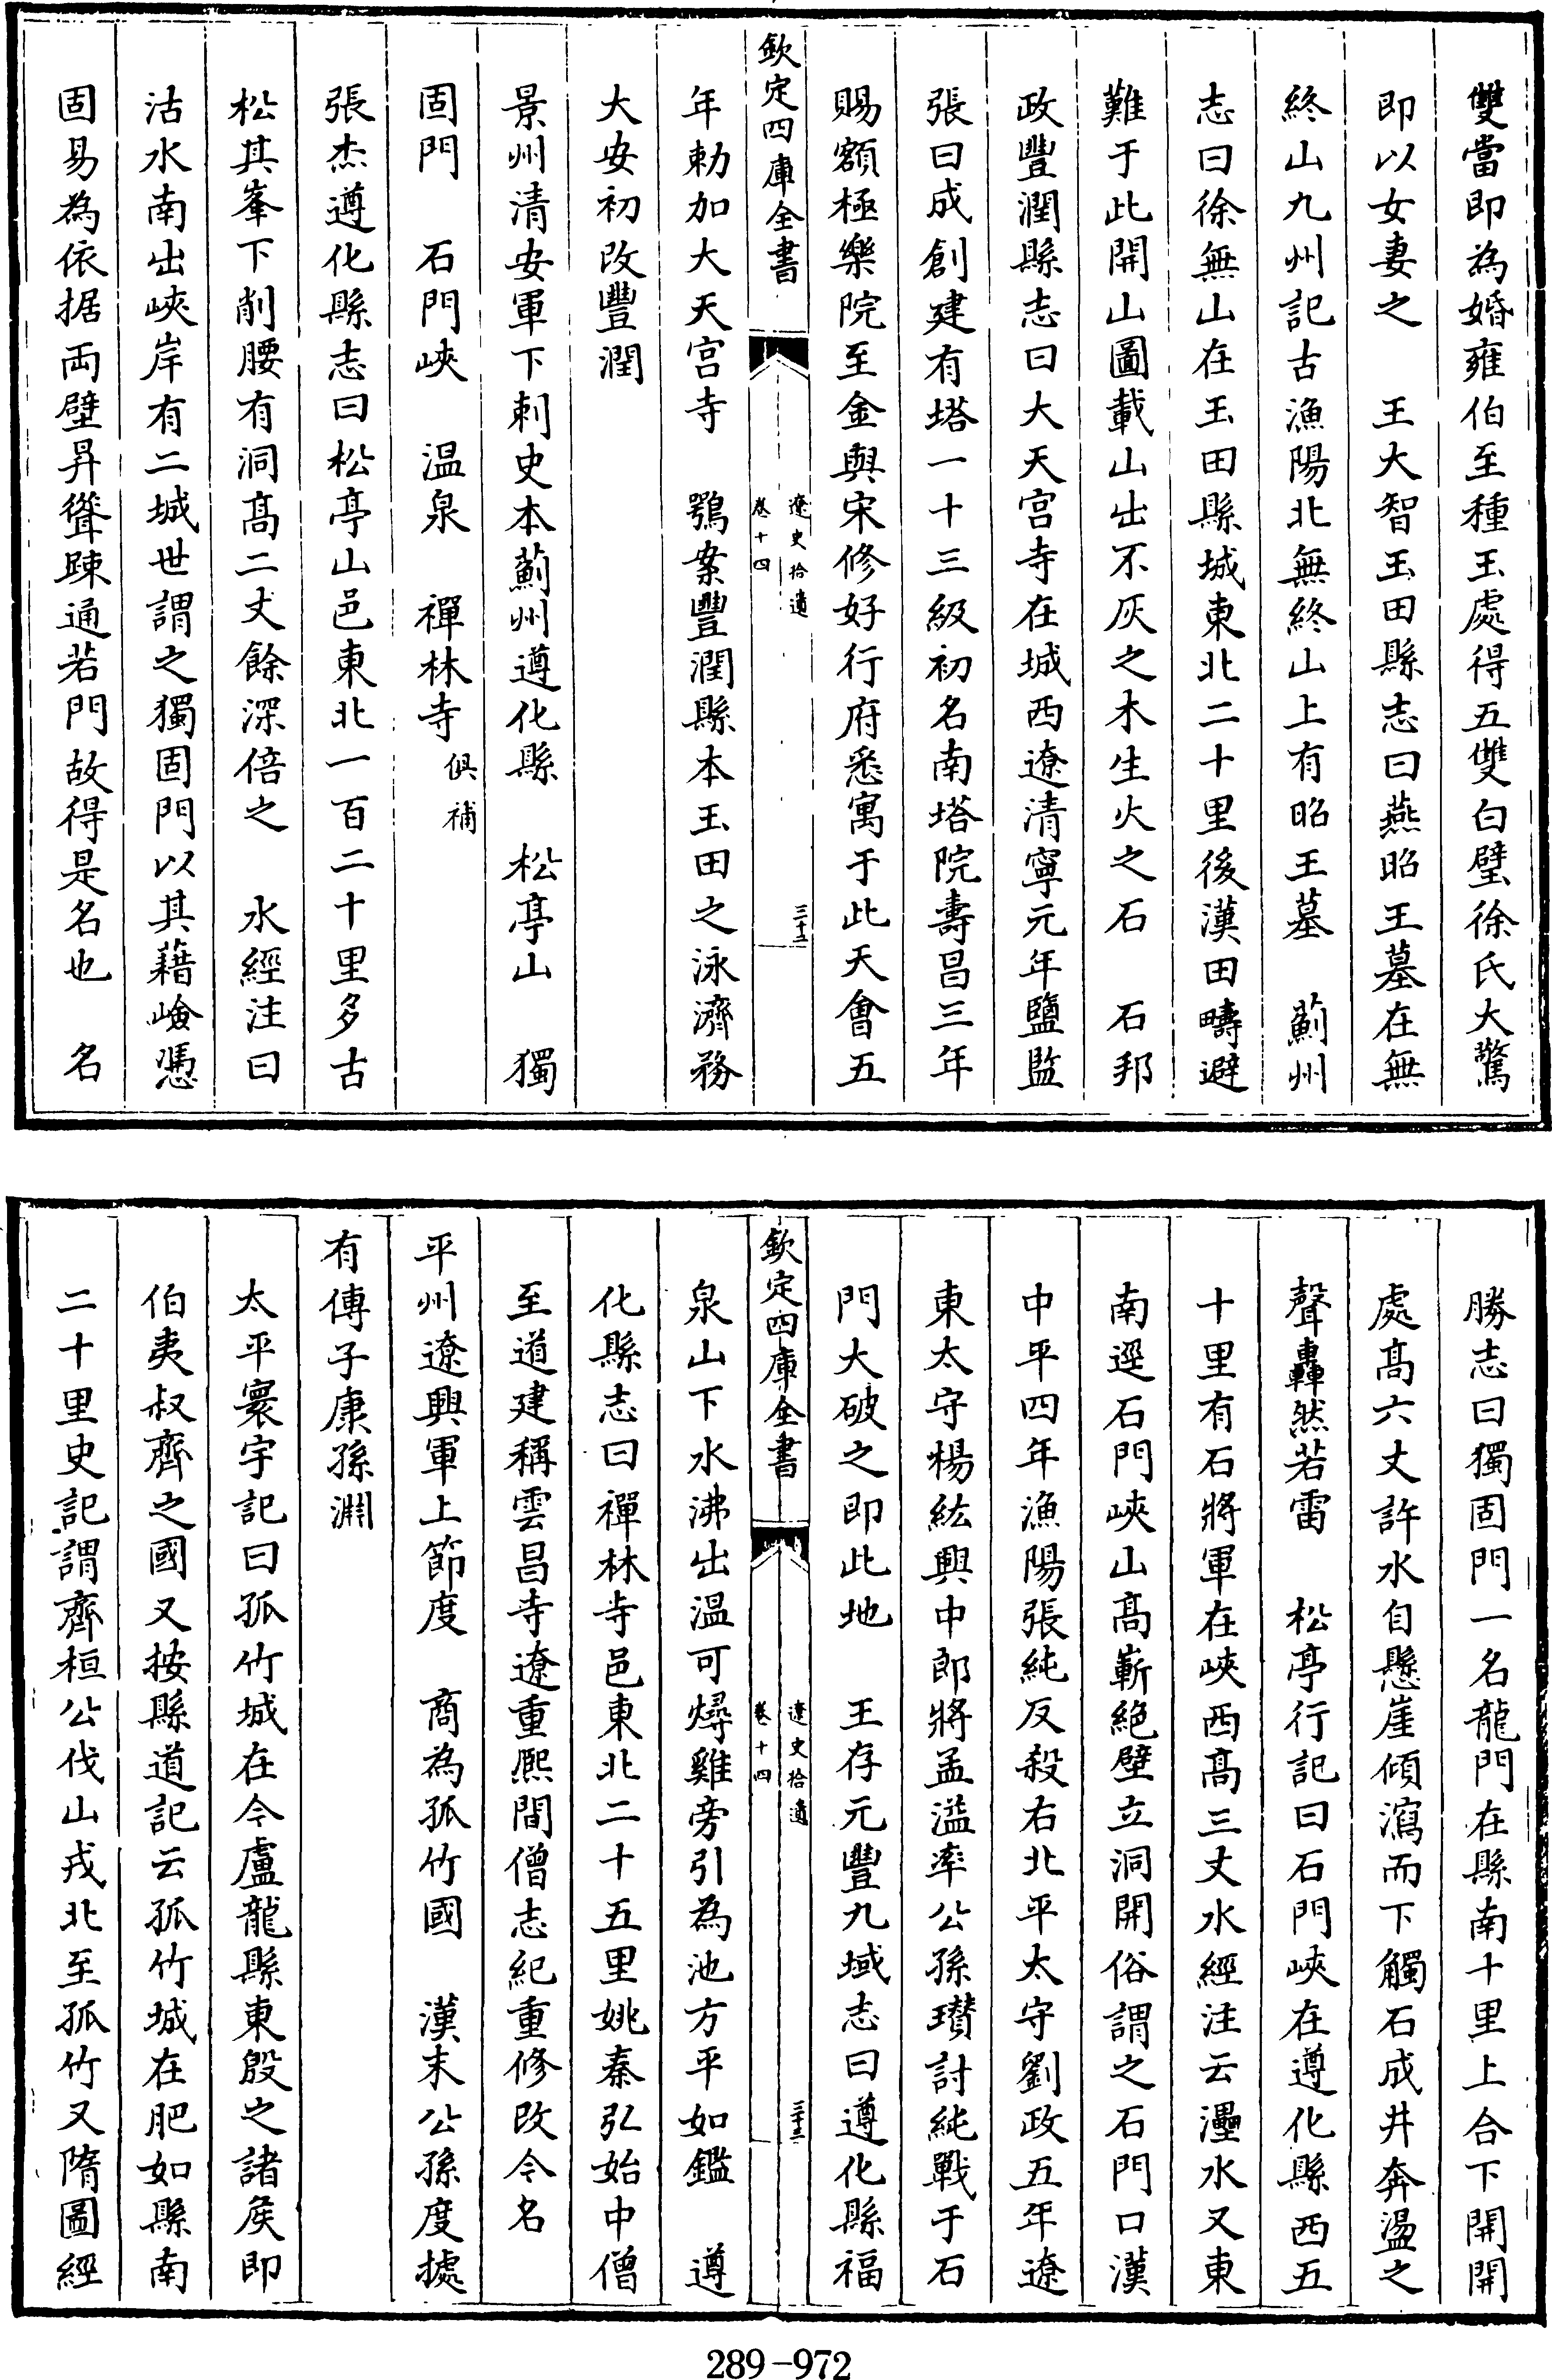 雙當即為婚雍伯至種玉處得五雙白璧徐氏大驚
即以女妻之　王大智玉田縣志曰燕昭王墓在無
終山九州記古漁陽北無終山上有昭王墓　薊州
志曰徐無山在玉田縣城東北二十里後漢田疇避
難于此開山圖載山出不灰之木生火之石　石邦
政豐潤縣志曰大天宮寺在城西遼清寧元年鹽監
張曰成創建有塔一十三級初名南塔院壽昌三年
賜額極樂院至金與宋修好行府悉寓于此天會五
欽定四庫全書
遼史拾遺
卷十四
三十二
年勅加大天宮寺　鶚案豐潤縣本玉田之泳濟務
大安初改豐潤
景州清安軍下刺史本薊州遵化縣　松亭山　獨
固門　石門峽　温泉　禪林寺俱補
張杰遵化縣志曰松亭山邑東北一百二十里多古
松其峯下削腰有洞高二丈餘深倍之　水經注曰
沽水南出峽岸有二城世謂之獨固門以其藉嶮憑
固易為依据両壁昇聳踈通若門故得是名也　名
勝志曰獨固門一名龍門在縣南十里上合下開開
處高六丈許水自懸崖傾瀉而下觸石成井奔盪之
聲轟然若雷　松亭行記曰石門峽在遵化縣西五
十里有石將軍在峽西高三丈水經注云灅水又東
南逕石門峽山高嶄絕壁立洞開俗謂之石門口漢
中平四年漁陽張純反殺右北平太守劉政五年遼
東太守楊紘興中郎將孟溢率公孫瓚討純戰于石
門大破之即此地　王存元豐九域志曰遵化縣福
欽定四庫全書
遼史拾遺
卷十四
三十三
泉山下水沸出温可燖雞旁引為池方平如鑑　遵
化縣志曰禪林寺邑東北二十五里姚秦弘始中僧
至道建稱雲昌寺遼重熙間僧志紀重修改今名
平州遼興軍上節度　商為孤竹國　漢末公孫度據
有傳子康孫淵
太平寰宇記曰孤竹城在今盧龍縣東殷之諸侯即
伯夷叔齊之國又按縣道記云孤竹城在肥如縣南
二十里史記謂齊桓公伐山戎北至孤竹又隋圖經
289-972